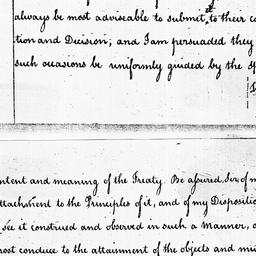 always be most adviseable to submit it to their co
tion and Decision; and I am persuaded they
such occasions be uniformly guided by the sp
ntent and meaning of the Treaty. Be assured Sir, of m
attachment to the Principles of it, and of my Dispositio
see it construed and observed in such a Manner, a
most conduce to the attainment of the objects and mu